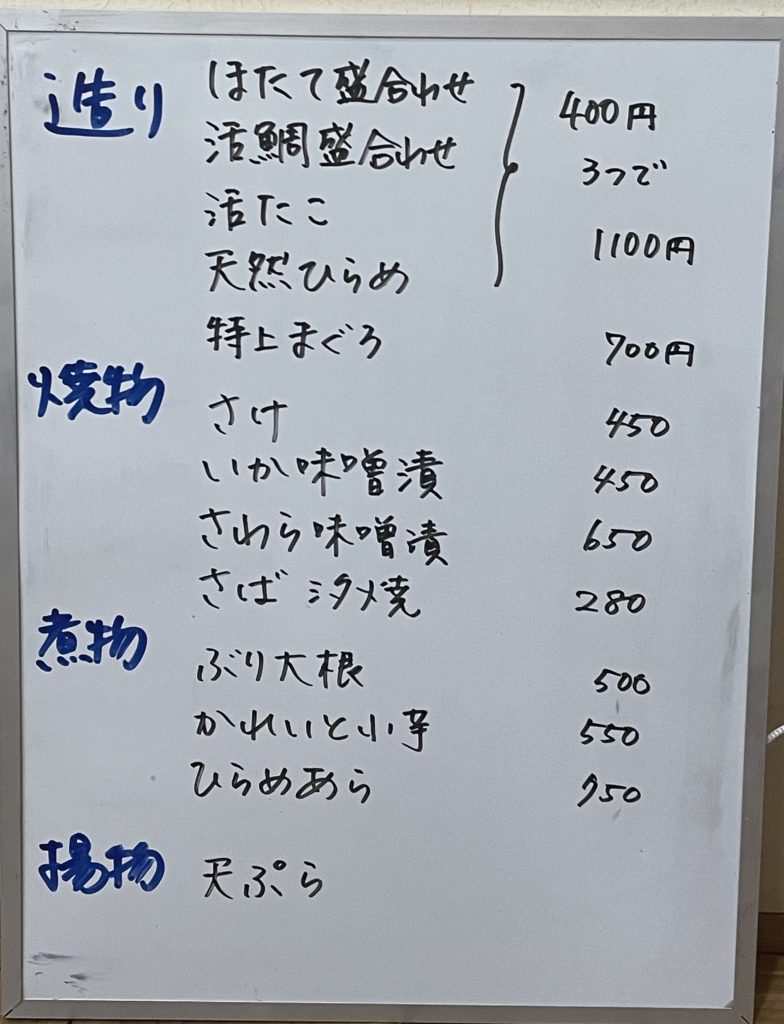 造り
ほたて盛合わせ 400円
活鯛盛合わせ 3つで
活たこ 1100円
天然ひらめ
特上まぐろ 700円
焼物
さけ 450
いか味噌漬 450
さわら味噌漬 650
さば 汐タメ焼 280
煮物
ぶり大根 500
かれいと小芋 550
ひらめあら 750
揚物
天ぷら